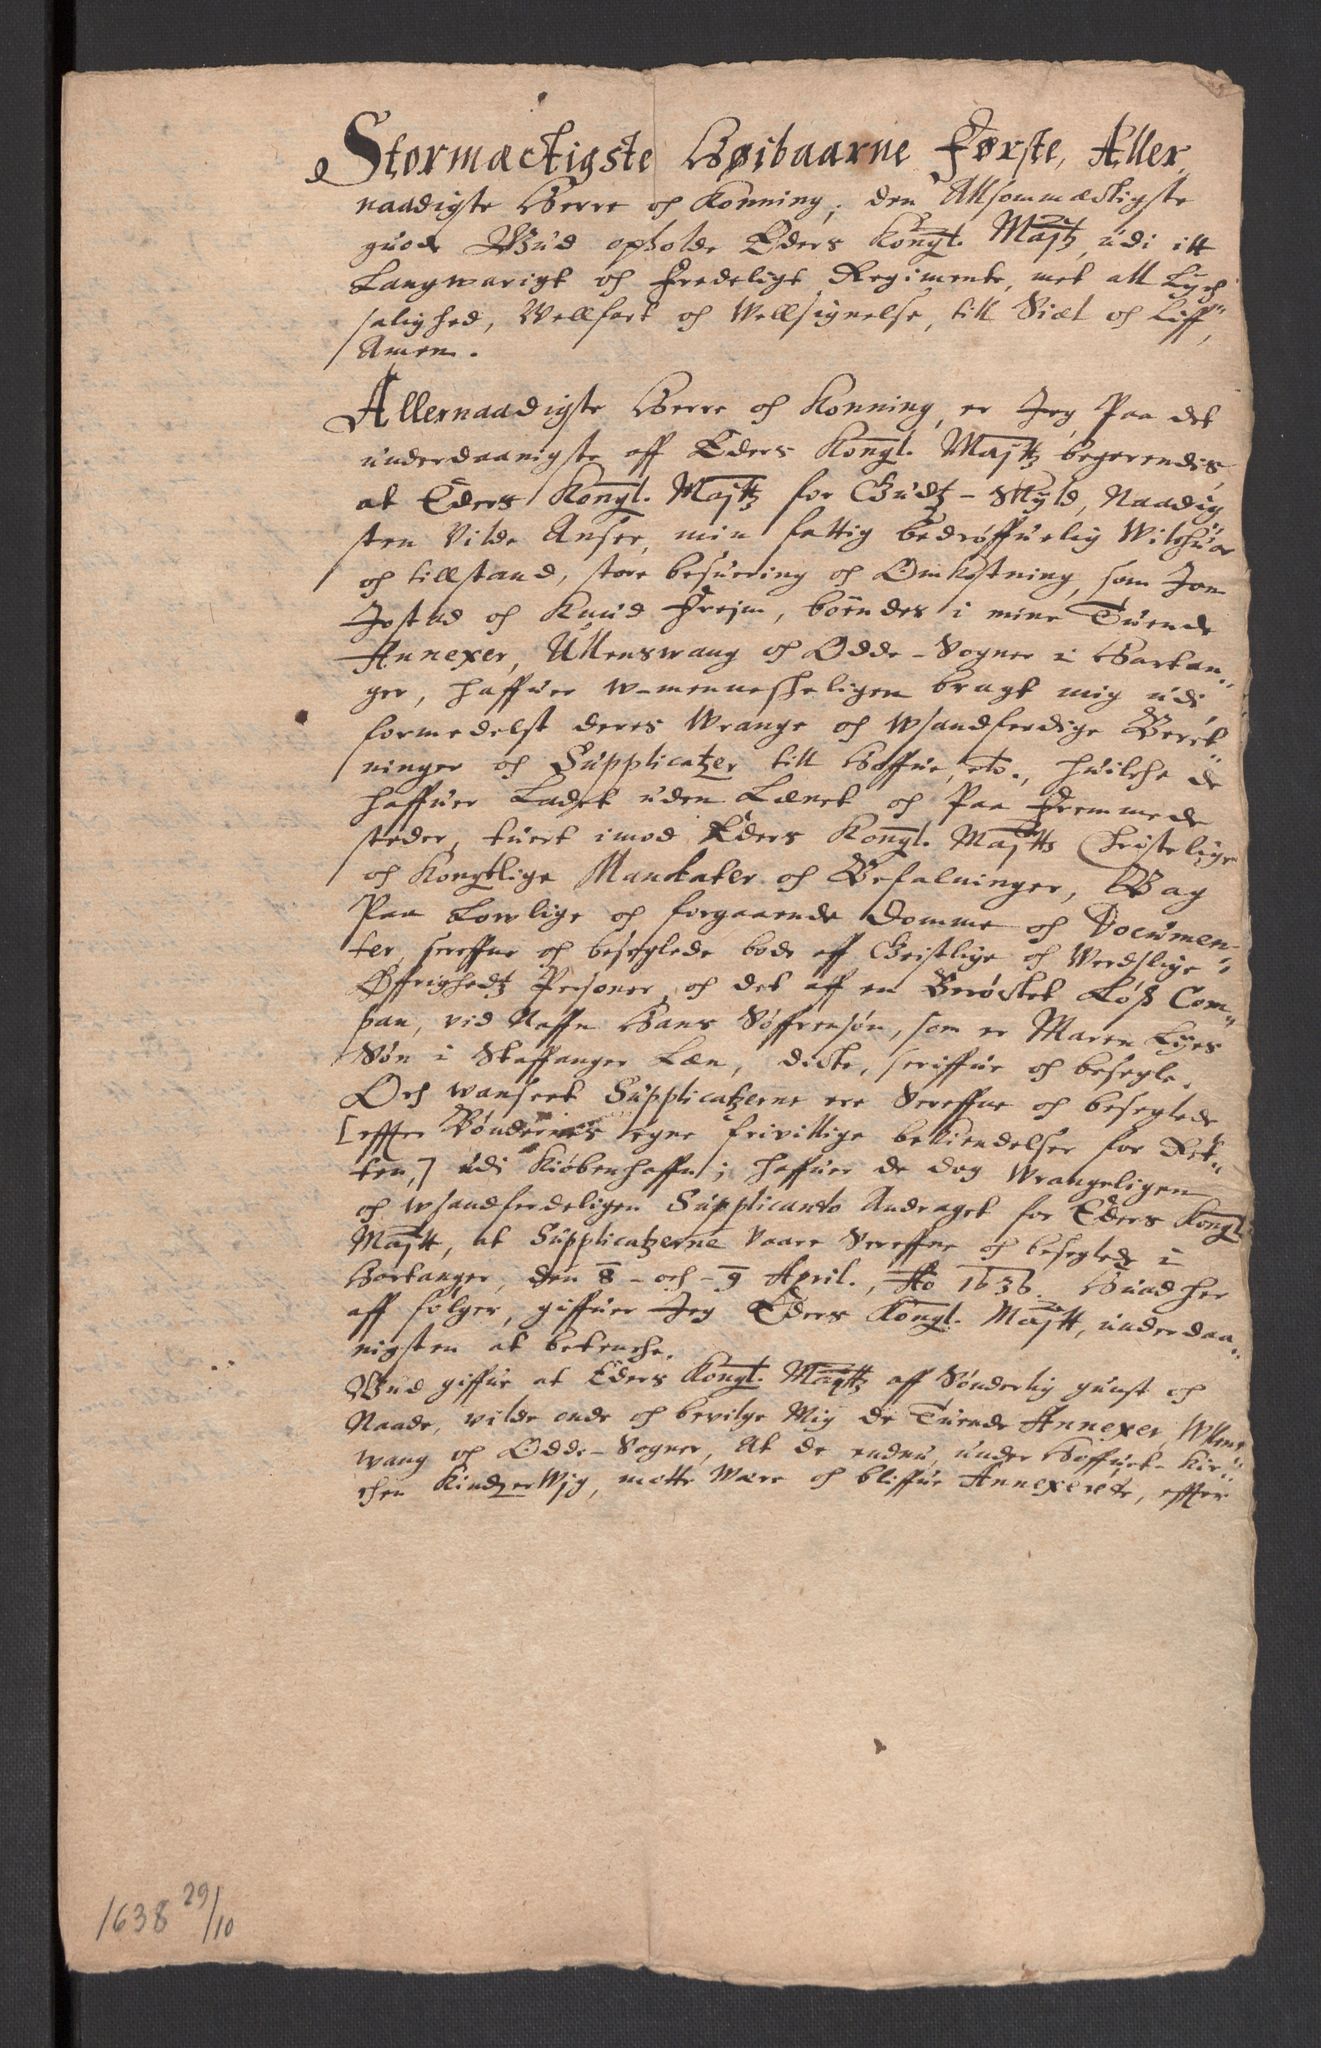 Stormæctigste Høibaarne Første, Aller
naadigste Herre och Konning, den Allsommæctigste
guode Gud opholde Eders Kongl. Majtz, udi itt
Langwarigt och Fredeligt Regimente, met all Lych
salighed, Vellfart och Wellsignelse, till Siæl och Liff,
Amen.
Allernaadigste Herre och Konning, er Jeg Paa det
underdaanigste aff Eders Kongl. Majttz begerendis,
at Eders Kongl. Majttz for Gudtz-Skyld, Naadig
sten Vilde Ansee, min fattig bedrøffuelig Wilchuor
och tillstand, store besuering och Omkostning, som Jon
Jostad och Knud Freim, bøendes i mine Tuende
Annexer, Ullenswang och Odde-Sogner i Hartan„
ger, haffuer w-menneskeligen bragt mig udi,
formedelst deres Wrange och wsandferdige Beret„
ninger och Supplicatzer till Hoffue, etc., huilche de
haffuer Ladet uden Lænet och Paa Fremmede
steder, tuert imod Eders Kongl. Majtts Christelige
och Kongtlige Mandater och Befalninger, Bag
Paa Lowlige och forgaaende Domme och Documen„
ter, screffne och beseglede bode aff Geistlige och Werdslige
Øffrighedtz Personer, och det aff en Berøctet Løß Com„
pan, vid Naffn Hans Søffrensøn, som er Maren Lyes
Søn i Staffanger Læn, dicte, scriffue och besegle.
Och wanseet Supplicatzerne ere Screffne och beseglede
[effter Bøndernes egne frivillige bekiendelser for Ret„
ten,] udi Kiøbenhaffn; haffuer de dog Wrangeligen
och wsandferdeligen Supplicando Andraget for Eders Kongl.
Majtt, at Supplicatzerne Vaare Screffne och beseglede i
Hartanger, den 8 - och - 9 April., Ao 1636. Huad her
aff følger, giffuer Jeg Eders Kongl. Majtt, underdaa„
nigsten at betenche.
Gud giffue at Eders Kongl. Mayttz aff Sønderlig gunst och
Naade, vilde unde och bevilge Mig de Tuende Annexer, Wllens„
wang och Odde-Sogner, At de endnu, under Hoffuet-Kir„
chen Kindzerwjg, motte Være och bliffue Annexerete, effter
1638 29/10